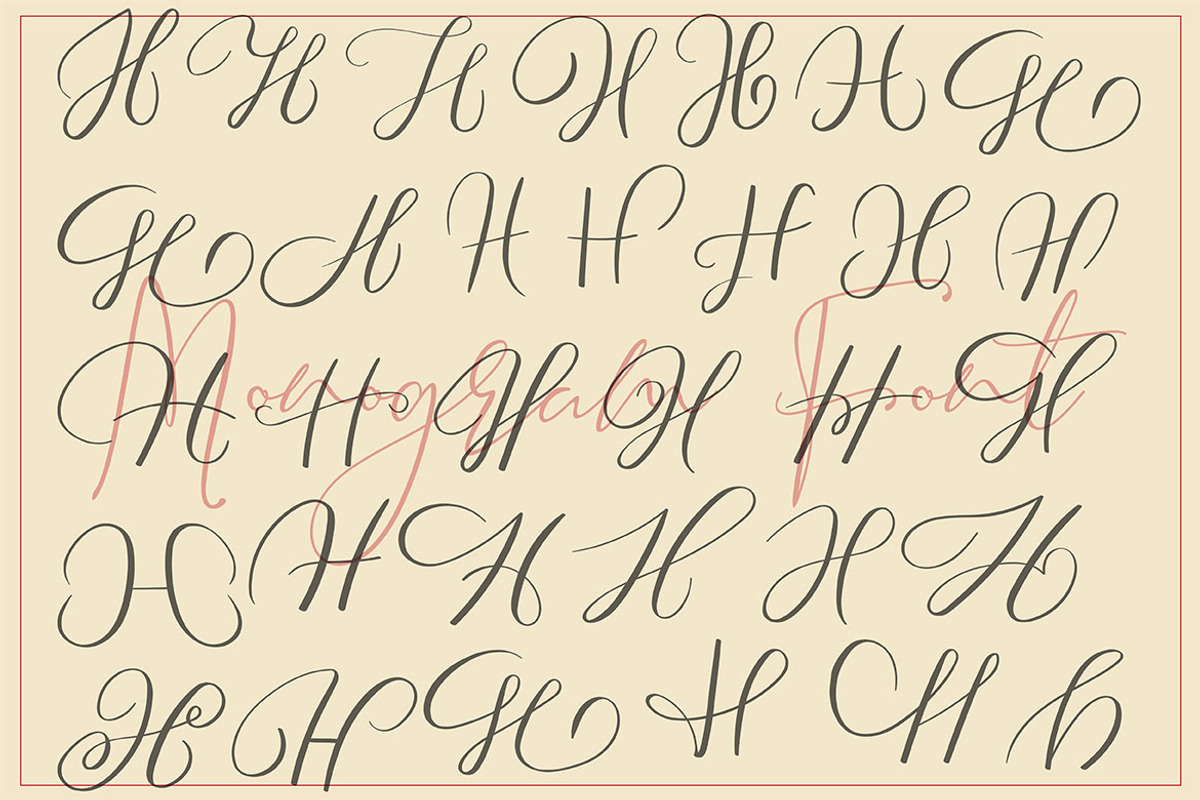 H H H H H H H
H H H H H H H
Monogram Font
H H H H H H
H H H H H H
H H H H H h